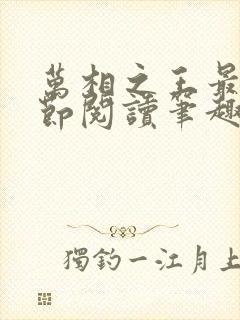 萬相之王最
節閱讀筆趣
獨釣一江月上